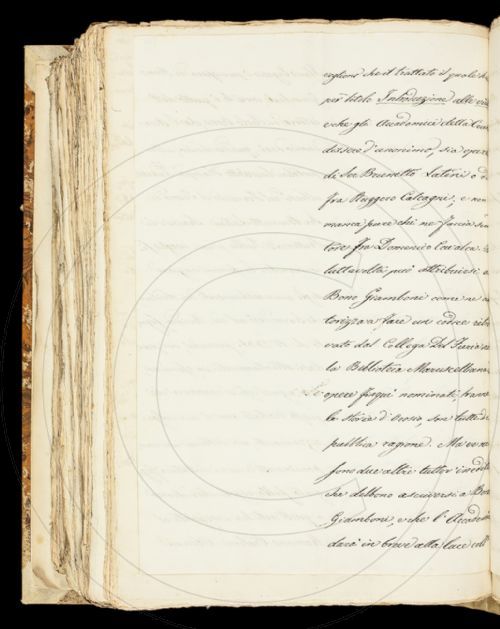 vogliono che il trattato il quale ha
per titolo Introduzione alle vir
e che gli Accademici della Crus
dissero d'anonimo, sia opera
di Ser Brunetto Latini o di
fra Ruggero Calcagni, e non
manca pure chi ne faccia au
tore fra Domenico Cavalca
tuttavolta può attribuirsi a
Bono Giamboni come ne au
torizza a fare un codice ritro
vato dal Collega Del Furia ne
la Biblioteca Marucelliana
Le opere fin qui nominate, tranne
la Storia d'Orosio, son tutte di
pubblica ragione. Ma vi so
fono due altre tuttor inedite
che debbono ascriversi a Bono
Giamboni, e che l'Accademia
darà in breve alla luce coll